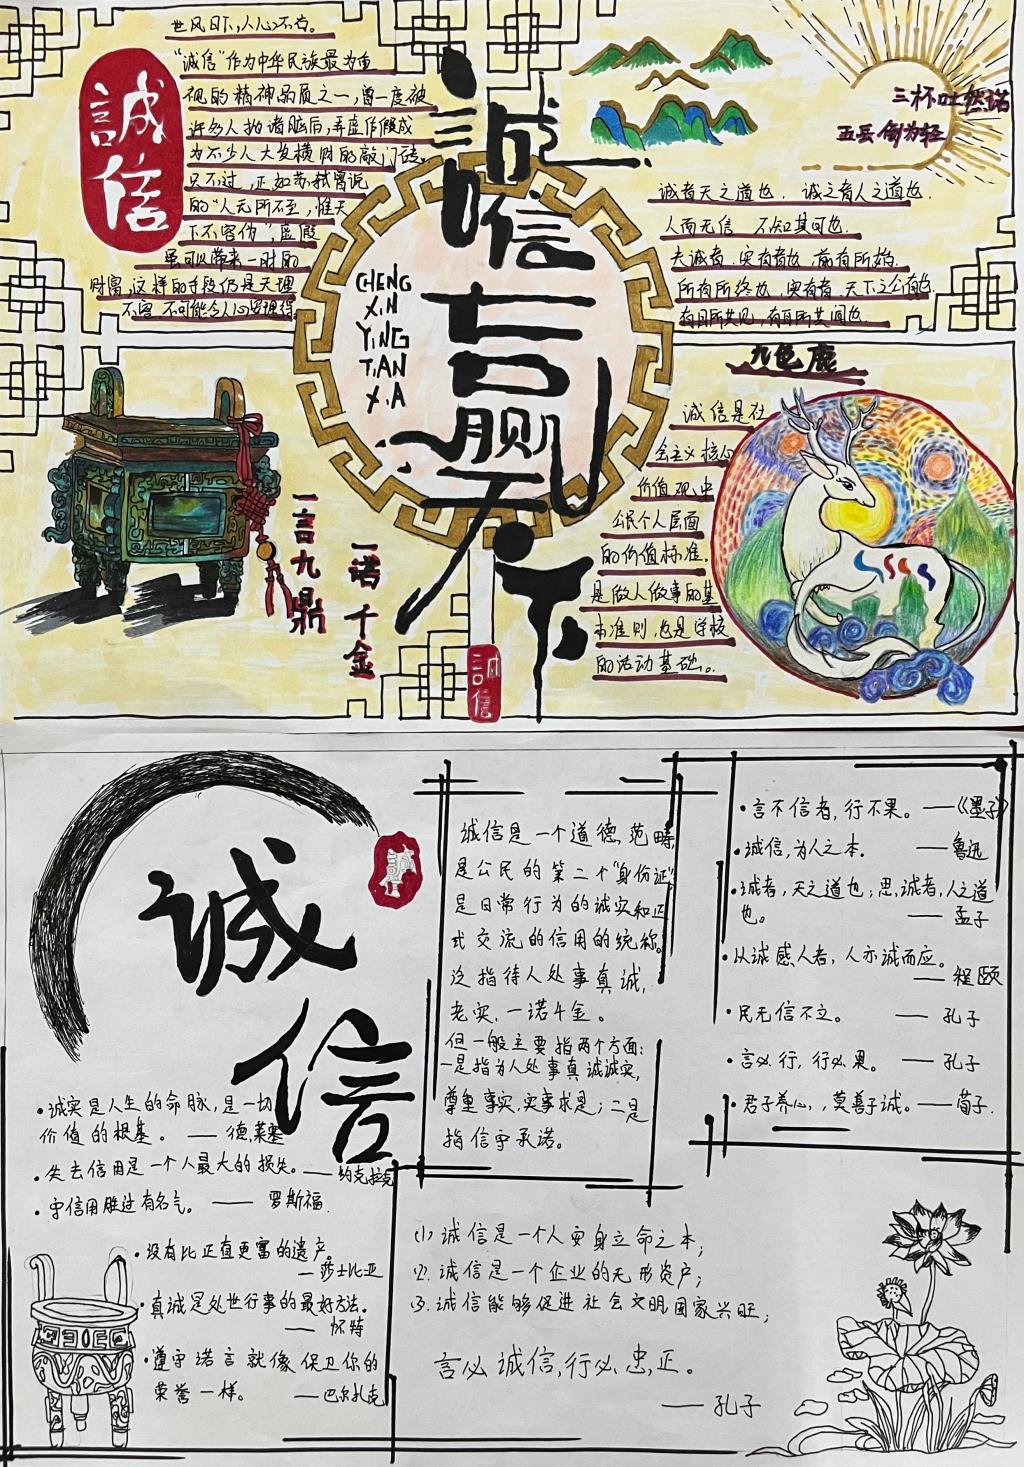 世风日下,人心不古。
"诚信"作为中华民族最为重
视的精神品质之一,曾一度被
许多人抛诸脑后,弄虚作假成
为不少人大发横财的敲门砖。
只不过,正如苏轼曾说
的"人无所不至,惟天
下不容伪",虚假
虽可以带来一时的
财富,这样的手段仍是天理
不容 不可能令人心安理得
誠信
誠信言赢天下
CHENG
XIN
YING
TIAN
XIA
三杯吐然诺
五岳倒为轻
诚者天之道也. 诚之者人之道也.
人而无信 不知其可也.
夫诚者.实有者也 前有所始.
所有所终也 实有者.天下之公有也.
有目所共见,有耳所共闻也.
一言九鼎
一诺千金
誠信
九色鹿
诚信是社
会主义核心
价值观中
公民个人层面
的价值标准.
是做人做事的基
本准则,也是学校
的活动基础。
诚信
诚
•诚实是人生的命脉,是一切
价值的根基。 —— 德莱塞
•失去信用是一个人最大的损失。——约克拉克
•守信用胜过有名气。 —— 罗斯福.
•没有比正直更富的遗产。
—莎士比亚
•真诚是处世行事的最好方法。
—— 怀特
•遵守诺言就像保卫你的
荣誉一样。 ——巴尔扎克
诚信是一个道德范畴,
是公民的第二个"身份证"
是日常行为的诚实和正
式交流的信用的统称。
泛指待人处事真诚,
老实,一诺千金。
但一般主要指两个方面:
一是指为人处事真诚诚实,
尊重事实,实事求是;二是
指信守承诺。
•言不信者,行不果。 ——《墨子》
•诚信,为人之本. ——鲁迅
•诚者,天之道也;思诚者,人之道
也。 —— 孟子
•以诚感人者,人亦诚而应。
—— 程颐
•民无信不立。 —— 孔子
•言必行,行必果。 —— 孔子
•君子养心,,莫善于诚。——荀子.
(1)诚信是一个人安身立命之本;
(2).诚信是一个企业的无形资产;
(3).诚信能够促进社会文明,国家兴旺;
言必诚信,行必忠正。
—— 孔子